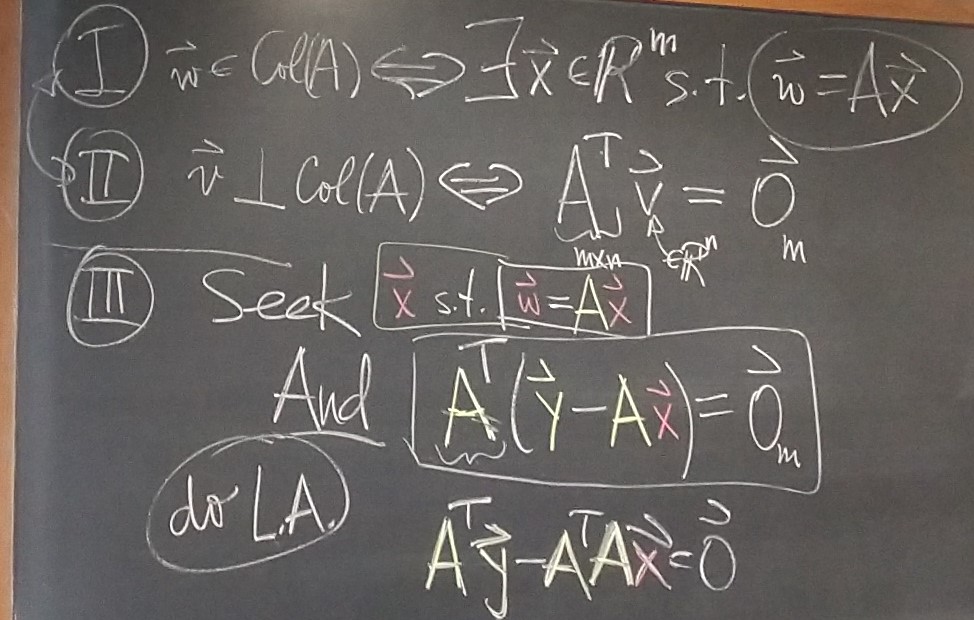 I w⃗ ∈ Col(A) ⟺ ∃ x⃗ ∈ ℝᵐ s.t. w⃗ = Ax⃗
II v⃗ ⊥ Col(A) ⟺ Aᵀ v⃗ = 0⃗ₘ
m×n ∈ℝⁿ
III Seek x⃗ s.t. w⃗ = Ax⃗
And Aᵀ(y⃗ − Ax⃗) = 0⃗ₘ
do L.A.
Aᵀy⃗ − AᵀAx⃗ = 0⃗